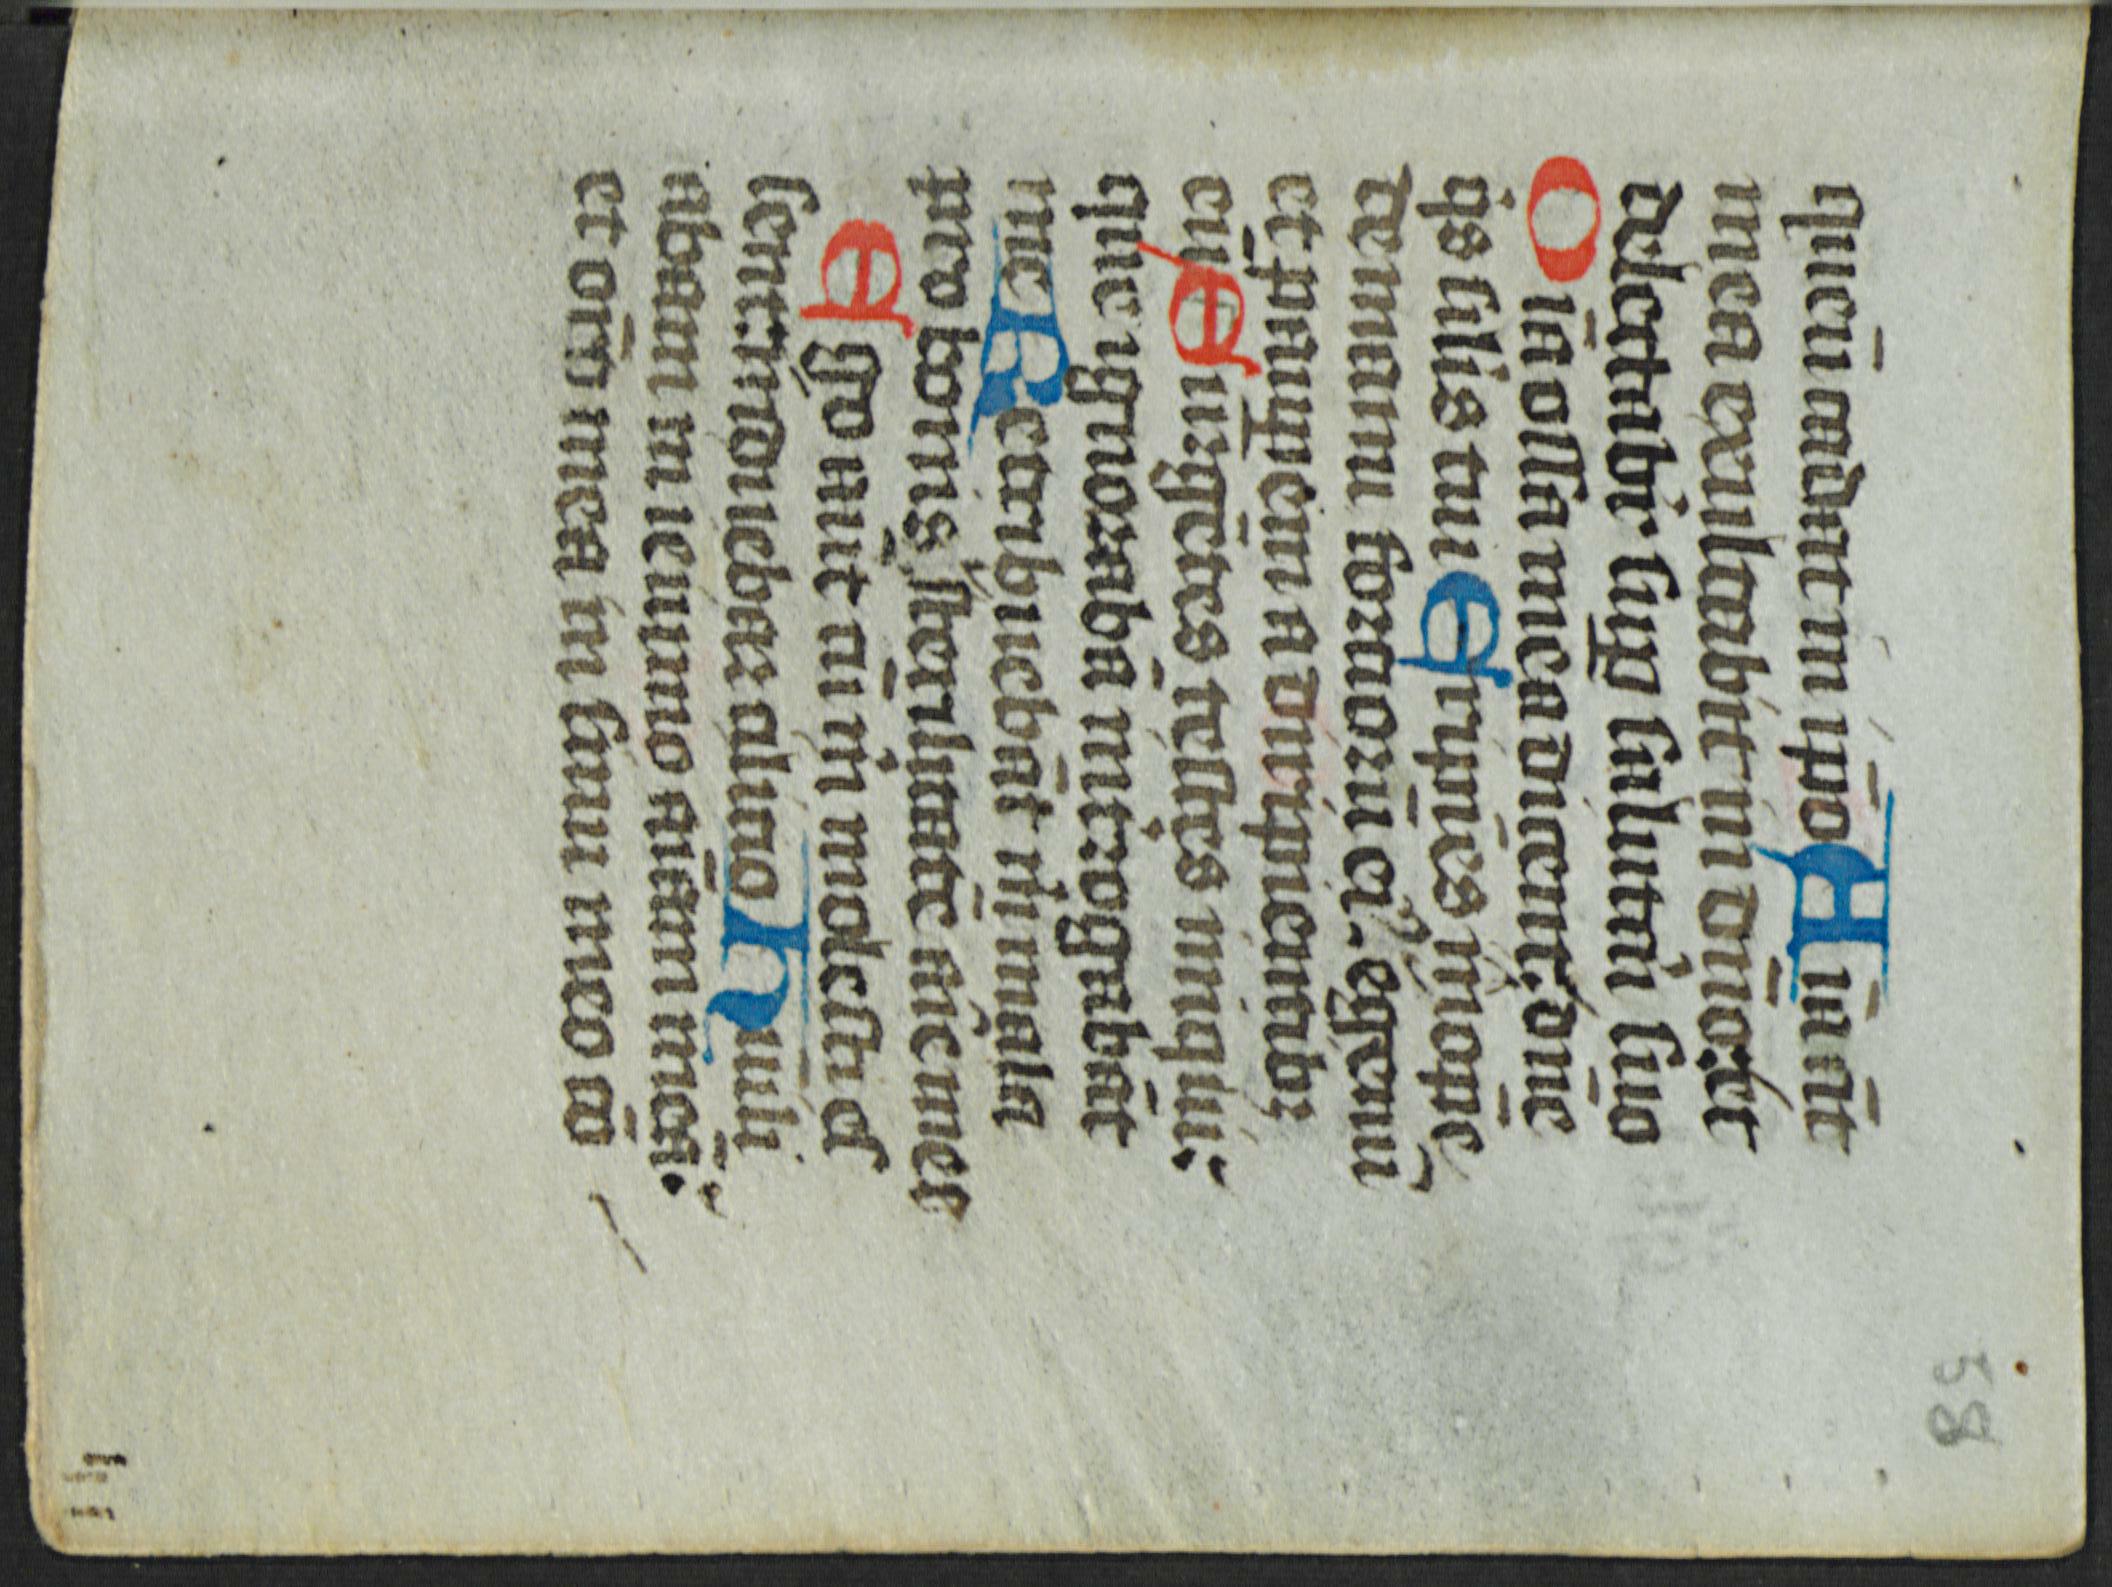 queū cadat in ipō Aniā āt
mea exultabit in dn̄o: et
delectabit̉ sup̱ salutari suo
Om̄ia ossa mea dicent: dn̄e
q̇s silis tui Eripies inopē
de manu fortiorū eiꝰ. egenū
et paup̱em a diripientibꝫ
eū Surgētes testes iniqui:
que ignorabā int̉rogabāt
me Retribuebāt m̄ mala
pro bonis sterilitatē aīe mee
Ego aūt cū m̄ molesti es
sent: induebar cilicio Humili
abam in ieiunio aīam meā:
et orō mea in sinu meo cō
58